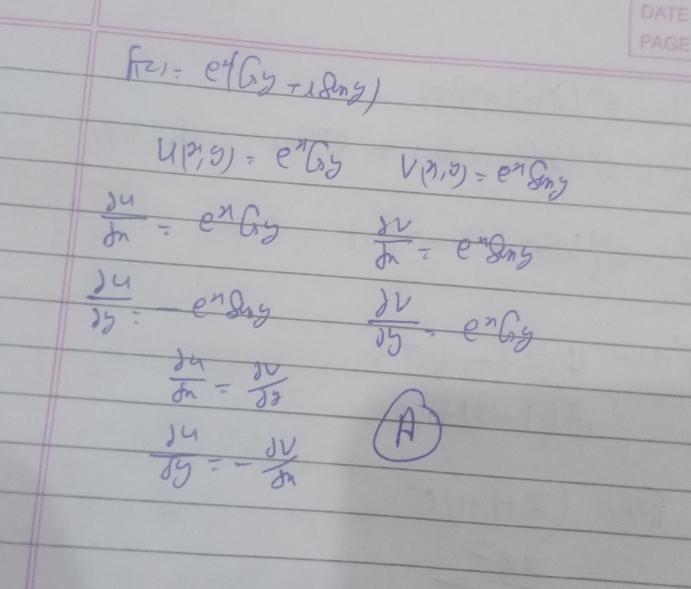 DATE
PAGE
F(z) = e^x(Cy + i Siny)
U(x,y) = e^x Cy V(x,y) = e^x Siny
∂u/∂x = e^x Cy ∂V/∂x = e^x Siny
∂u/∂y = - e^x Siny ∂V/∂y = e^x Cy
∂u/∂x = ∂V/∂y
∂u/∂y = - ∂V/∂x
A